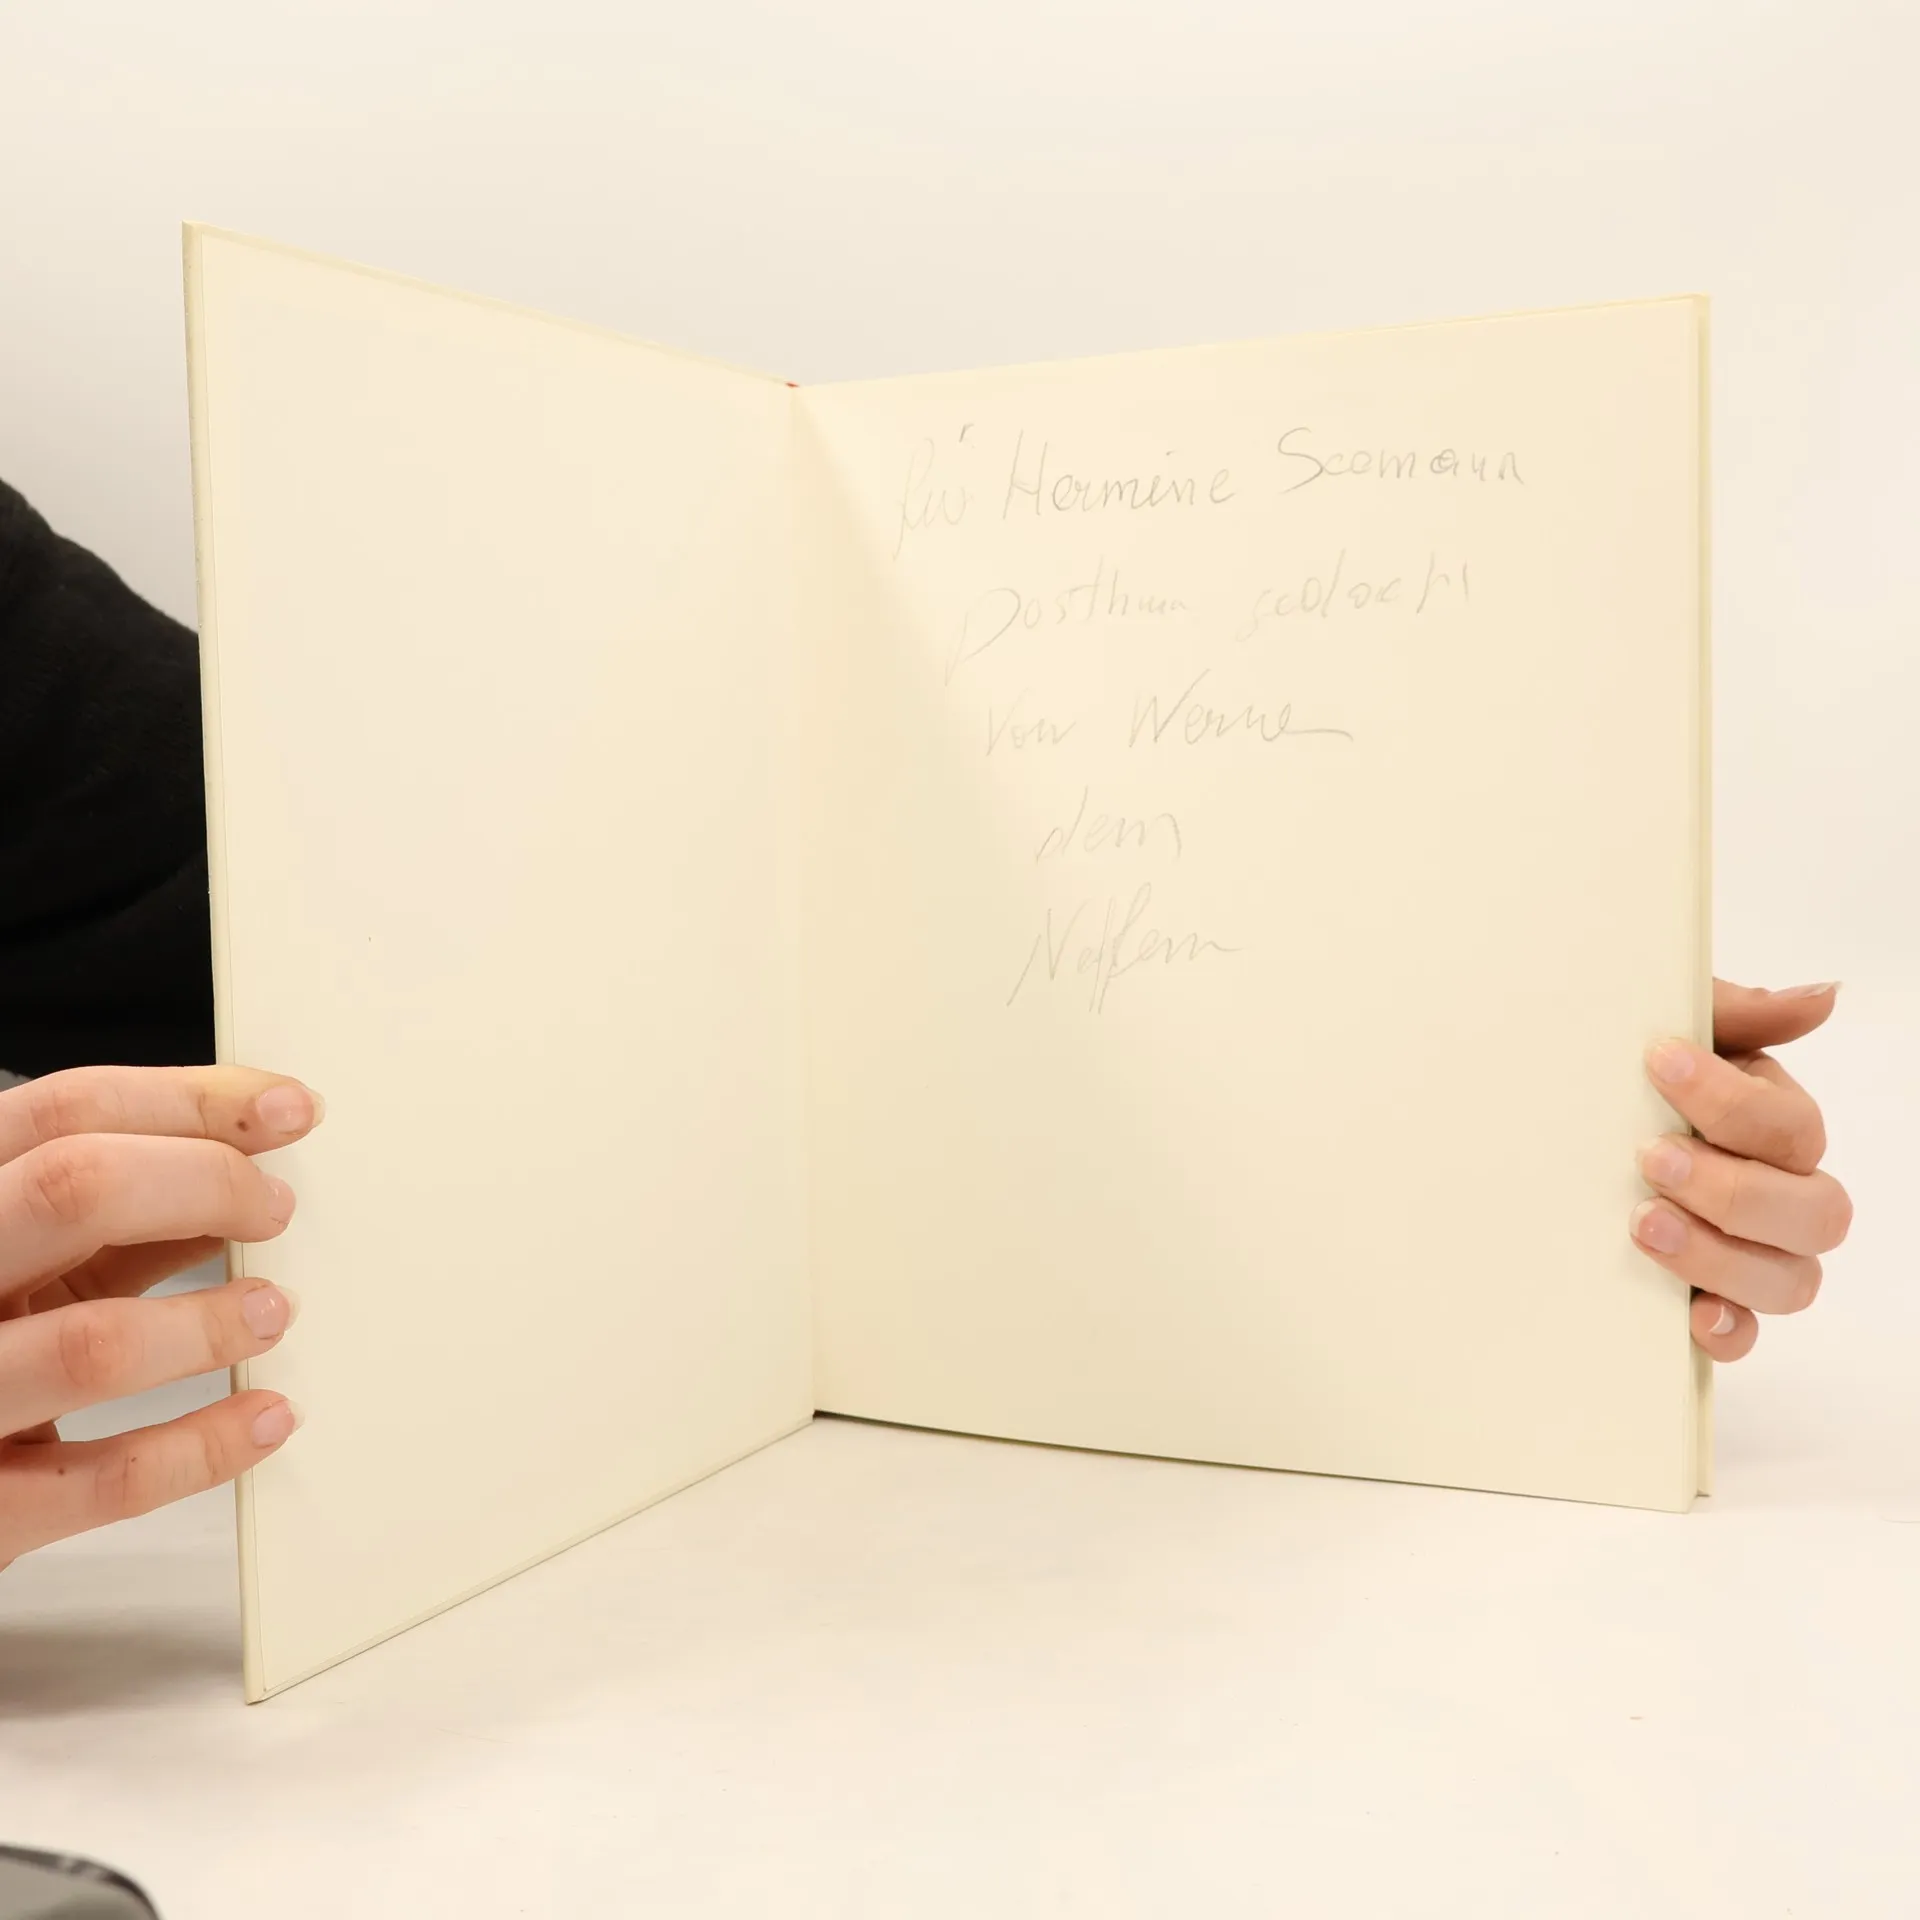 für Hermine Seemann
Posthum gedacht
Von Werner
dem
Neffen